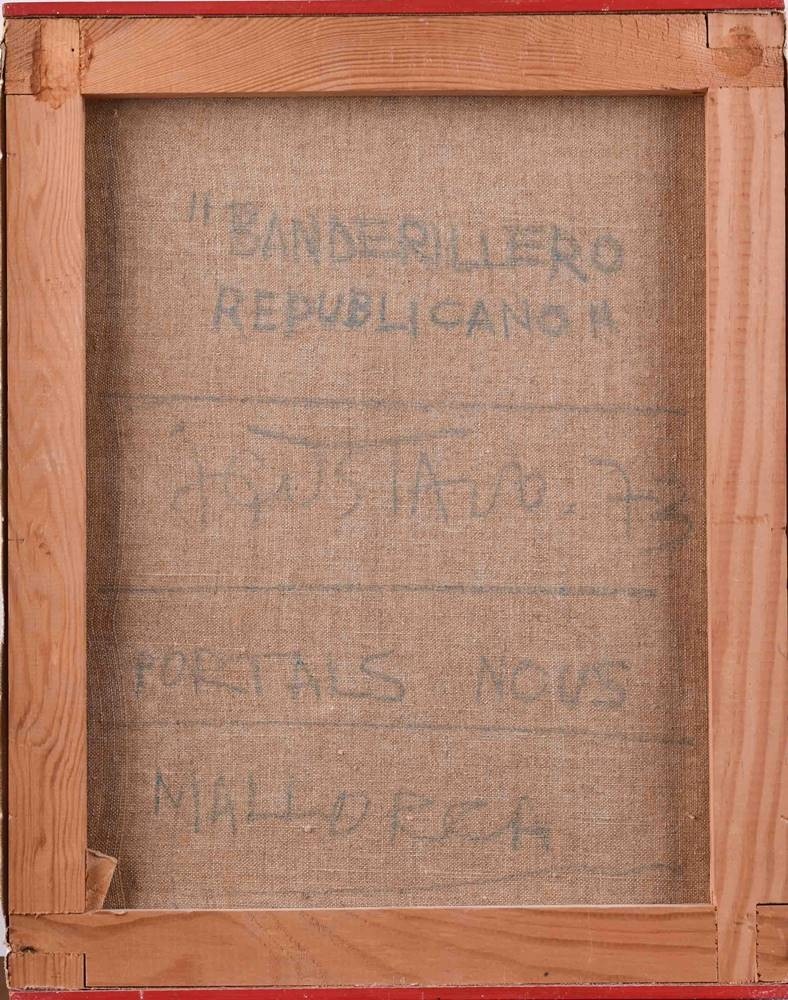 "BANDERILLERO
REPUBLICANO"
GUSTAVO. 73
PORTALS NOUS
MALLORCA